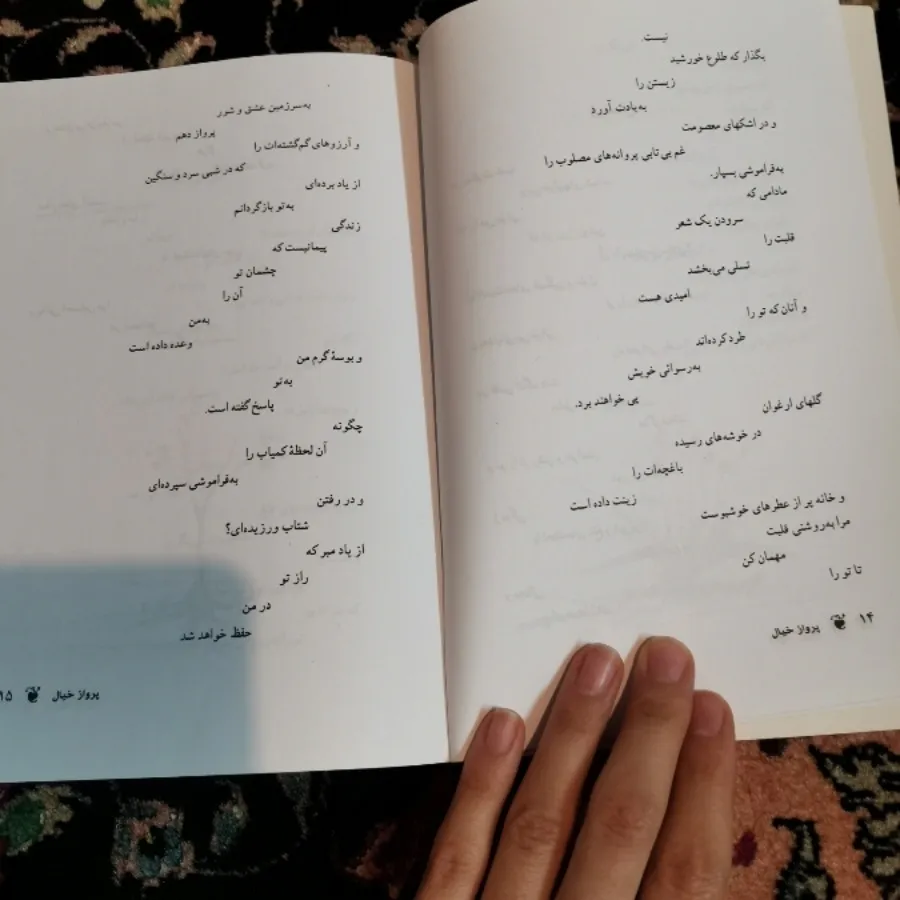 نیست.
بگذار که طلوع خورشید
زیستن را
به‌یادت آورد
و در اشکهای معصومت
غم بی تابی پروانه‌های مصلوب را
به‌فراموشی بسپار.
مادامی که
سرودن یک شعر
قلبت را
تسلی می‌بخشد
امیدی هست
و آنان که تو را
طرد کرده‌اند
به‌رسوائی خویش
پی خواهند برد.
گلهای ارغوان
در خوشه‌های رسیده
باغچه‌ات را
زینت داده است
و خانه پر از عطرهای خوشبوست
مرا به‌روشنی قلبت
مهمان کن
تا تو را
۱۴ پرواز خیال
به‌سرزمین عشق و شور
پرواز دهم
و آرزوهای گم‌گشته‌ات را
که در شبی سرد و سنگین
از یاد برده‌ای
به‌تو بازگردانم
زندگی
پیمانیست که
چشمان تو
آن را
به‌من
وعده داده است
و بوسهٔ گرم من
به‌تو
پاسخ گفته است.
چگونه
آن لحظهٔ کمیاب را
به‌فراموشی سپرده‌ای
و در رفتن
شتاب ورزیده‌ای؟
از یاد مبر که
راز تو
در من
حفظ خواهد شد
پرواز خیال ۱۵